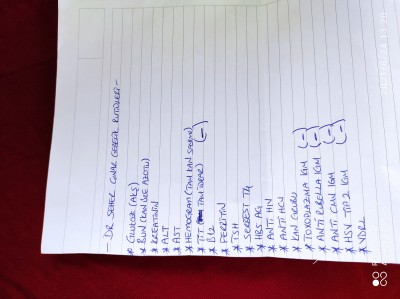 - DR SEHER ÇINAR GEBELİK RUTİNLERİ -
* GLUKOZ (AKŞ)
* BUN (KAN ÜRE AZOTU)
* KREATİNİN
* ALT
* AST
* HEMOGRAM (TAM KAN SAYIMI)
* TİT (TAM İDRAR) (-)
* B12
* FERRİTİN
* TSH
* SERBEST T4
* HBS AG
* ANTİ HIV
* ANTİ HCV
* KAN GRUBU
* TOXOPLAZMA IGM (-)
* ANTİ RUBELLA IGM (-)
* ANTİ CMV IGM (-)
* HSV TİP 2 IGM (-)
* VDRL